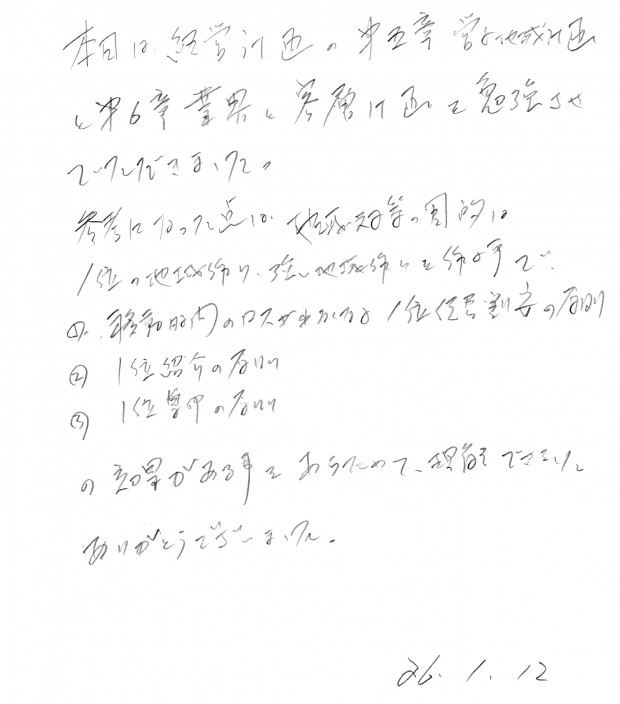 本日は経営計画の第五章 営業地域計画
と第6章業界と客層計画を勉強させ
ていただきました。
参考になった点は、地域対策の目的は
1位の地域作り、強い地域作りを作る事で、
① 移動時間のロスがわかると1位占有割合の原則
② 1位紹介の原則
③ 1位集中の原則
の効果がある事をあらためて、理解できました。
ありがとうございました。
26.1.12